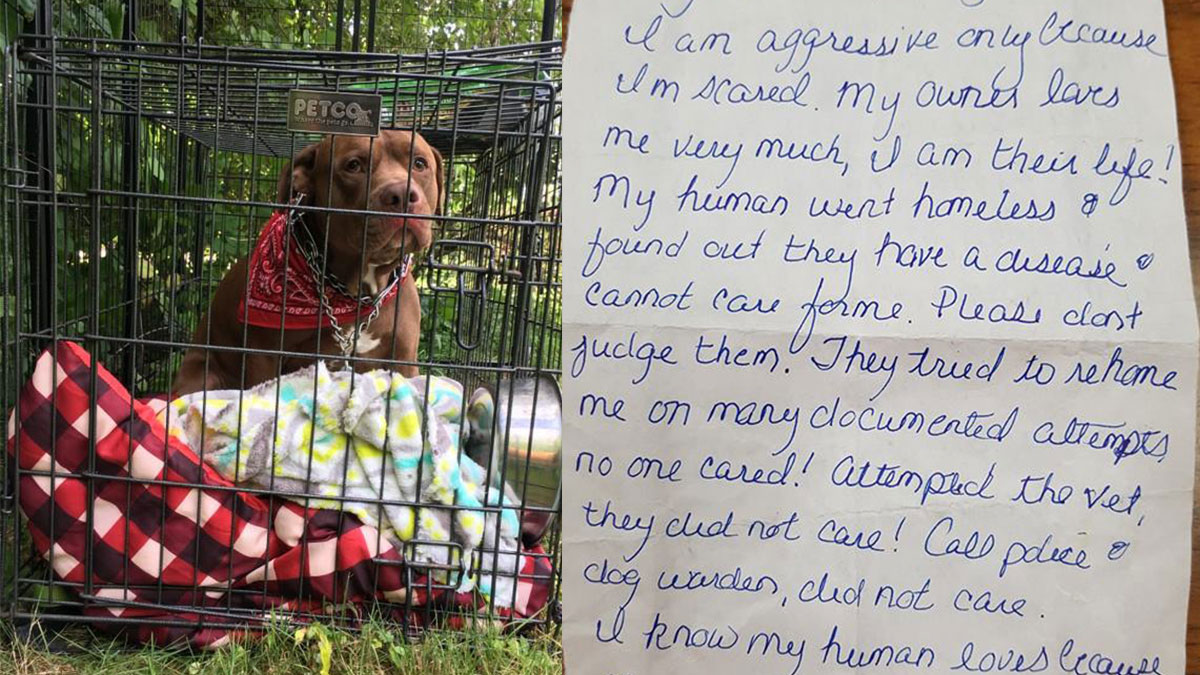 PETCO
I am aggressive only because
I'm scared. My owner loves
me very much, I am their life!
My human went homeless &
found out they have a disease &
cannot care for me. Please dont
judge them. They tried to rehome
me on many documented attempts,
no one cared! Attempted the vet,
they did not care! Call police &
dog warden, did not care.
I know my human loves because